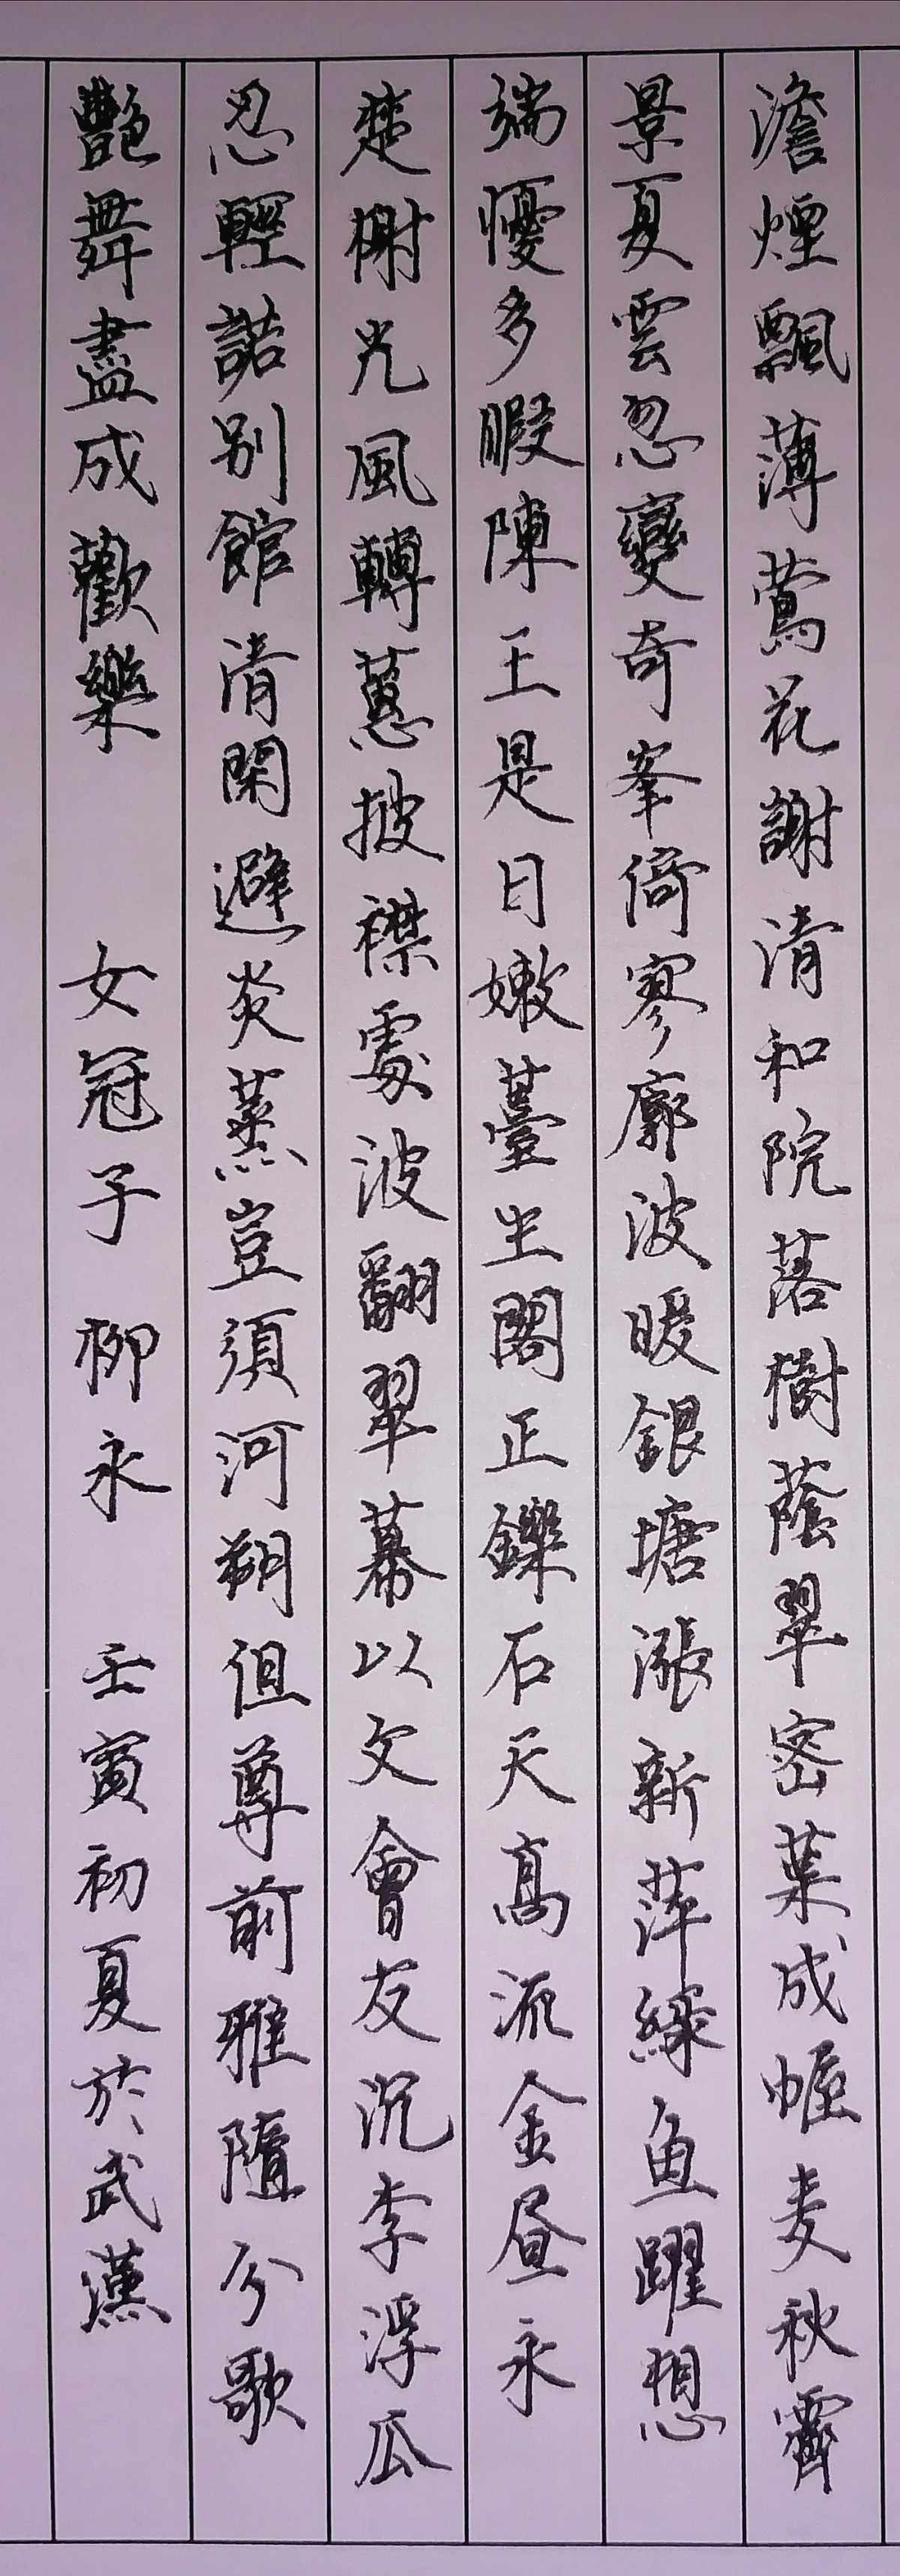 澹煙飄薄鶯花謝清和院落樹蔭翠密葉成幄麦秋霽
景夏雲忽變奇峯倚寥廓波暖銀塘漲新萍綠魚躍想
端憂多暇陳王是日嫩薹生閣正鑠石天高流金昼永
楚榭光風轉蕙披襟處波翻翠幕以文會友沉李浮瓜
忍輕諾別館清閑避炎蒸豈須河朔但尊前雅隨分歌
艷舞盡成歡樂 女冠子 柳永 壬寅初夏於武漢